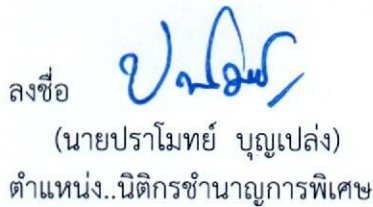 ลงชื่อ
(นายปราโมทย์ บุญเปล่ง)
ตำแหน่ง..นิติกรชำนาญการพิเศษ